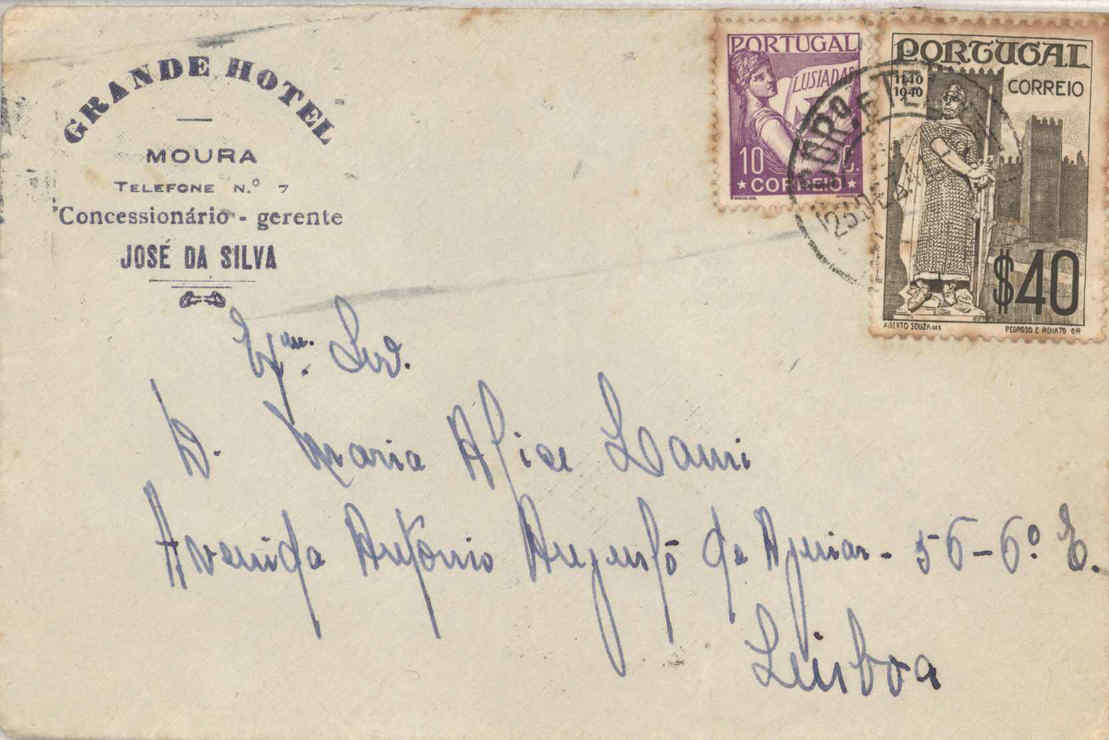 GRANDE HOTEL
MOURA
TELEFONE N.º 7
Concessionário - gerente
JOSÉ DA SILVA
PORTUGAL
LUSIADAS
10 C.
CORREIO
PORTUGAL
1140
1940
CORREIO
$40
Exma. Snr.
D. Maria Alice Lami
Avenida António Augusto de Aguiar - 56-6º E.
Lisboa